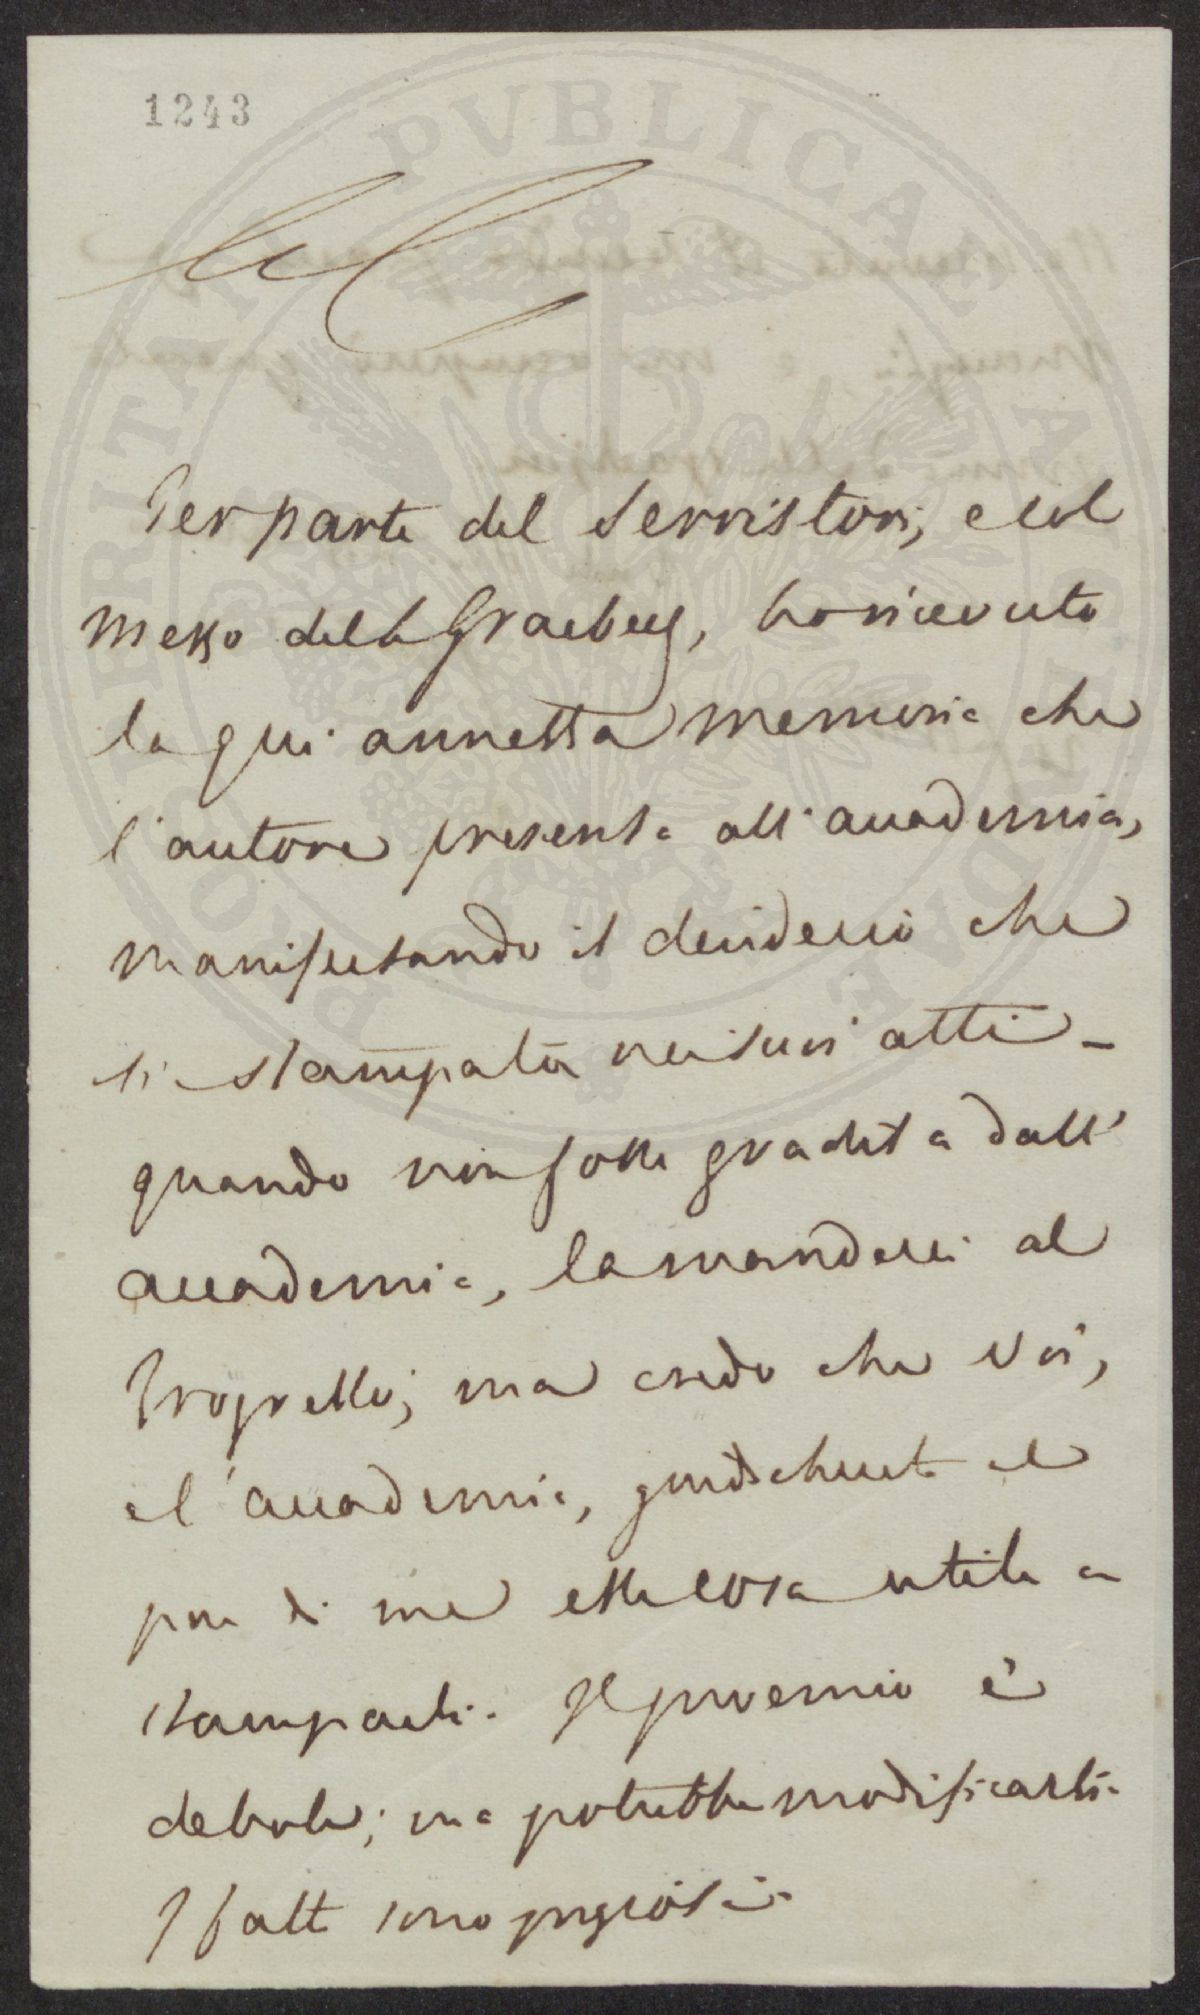 1243
PROSPERITATI PVBLICAE AVGENDAE
Per parte del Serristori, e col
mezzo dello Graeberg, ho ricevuto
la qui annessa memoria che
l'autore presenta all'accademia,
manifestando il desiderio che
sia stampata nei suoi atti _
quando non fosse gradita dall'
accademia, la manderei al
Progresso; ma credo che voi,
e l'accademia, giudicherete al
par di me esser cosa utile a
stamparsi. Il proemio è
debole; ma potrebbe modificarsi.
I fatti sono preziosi.